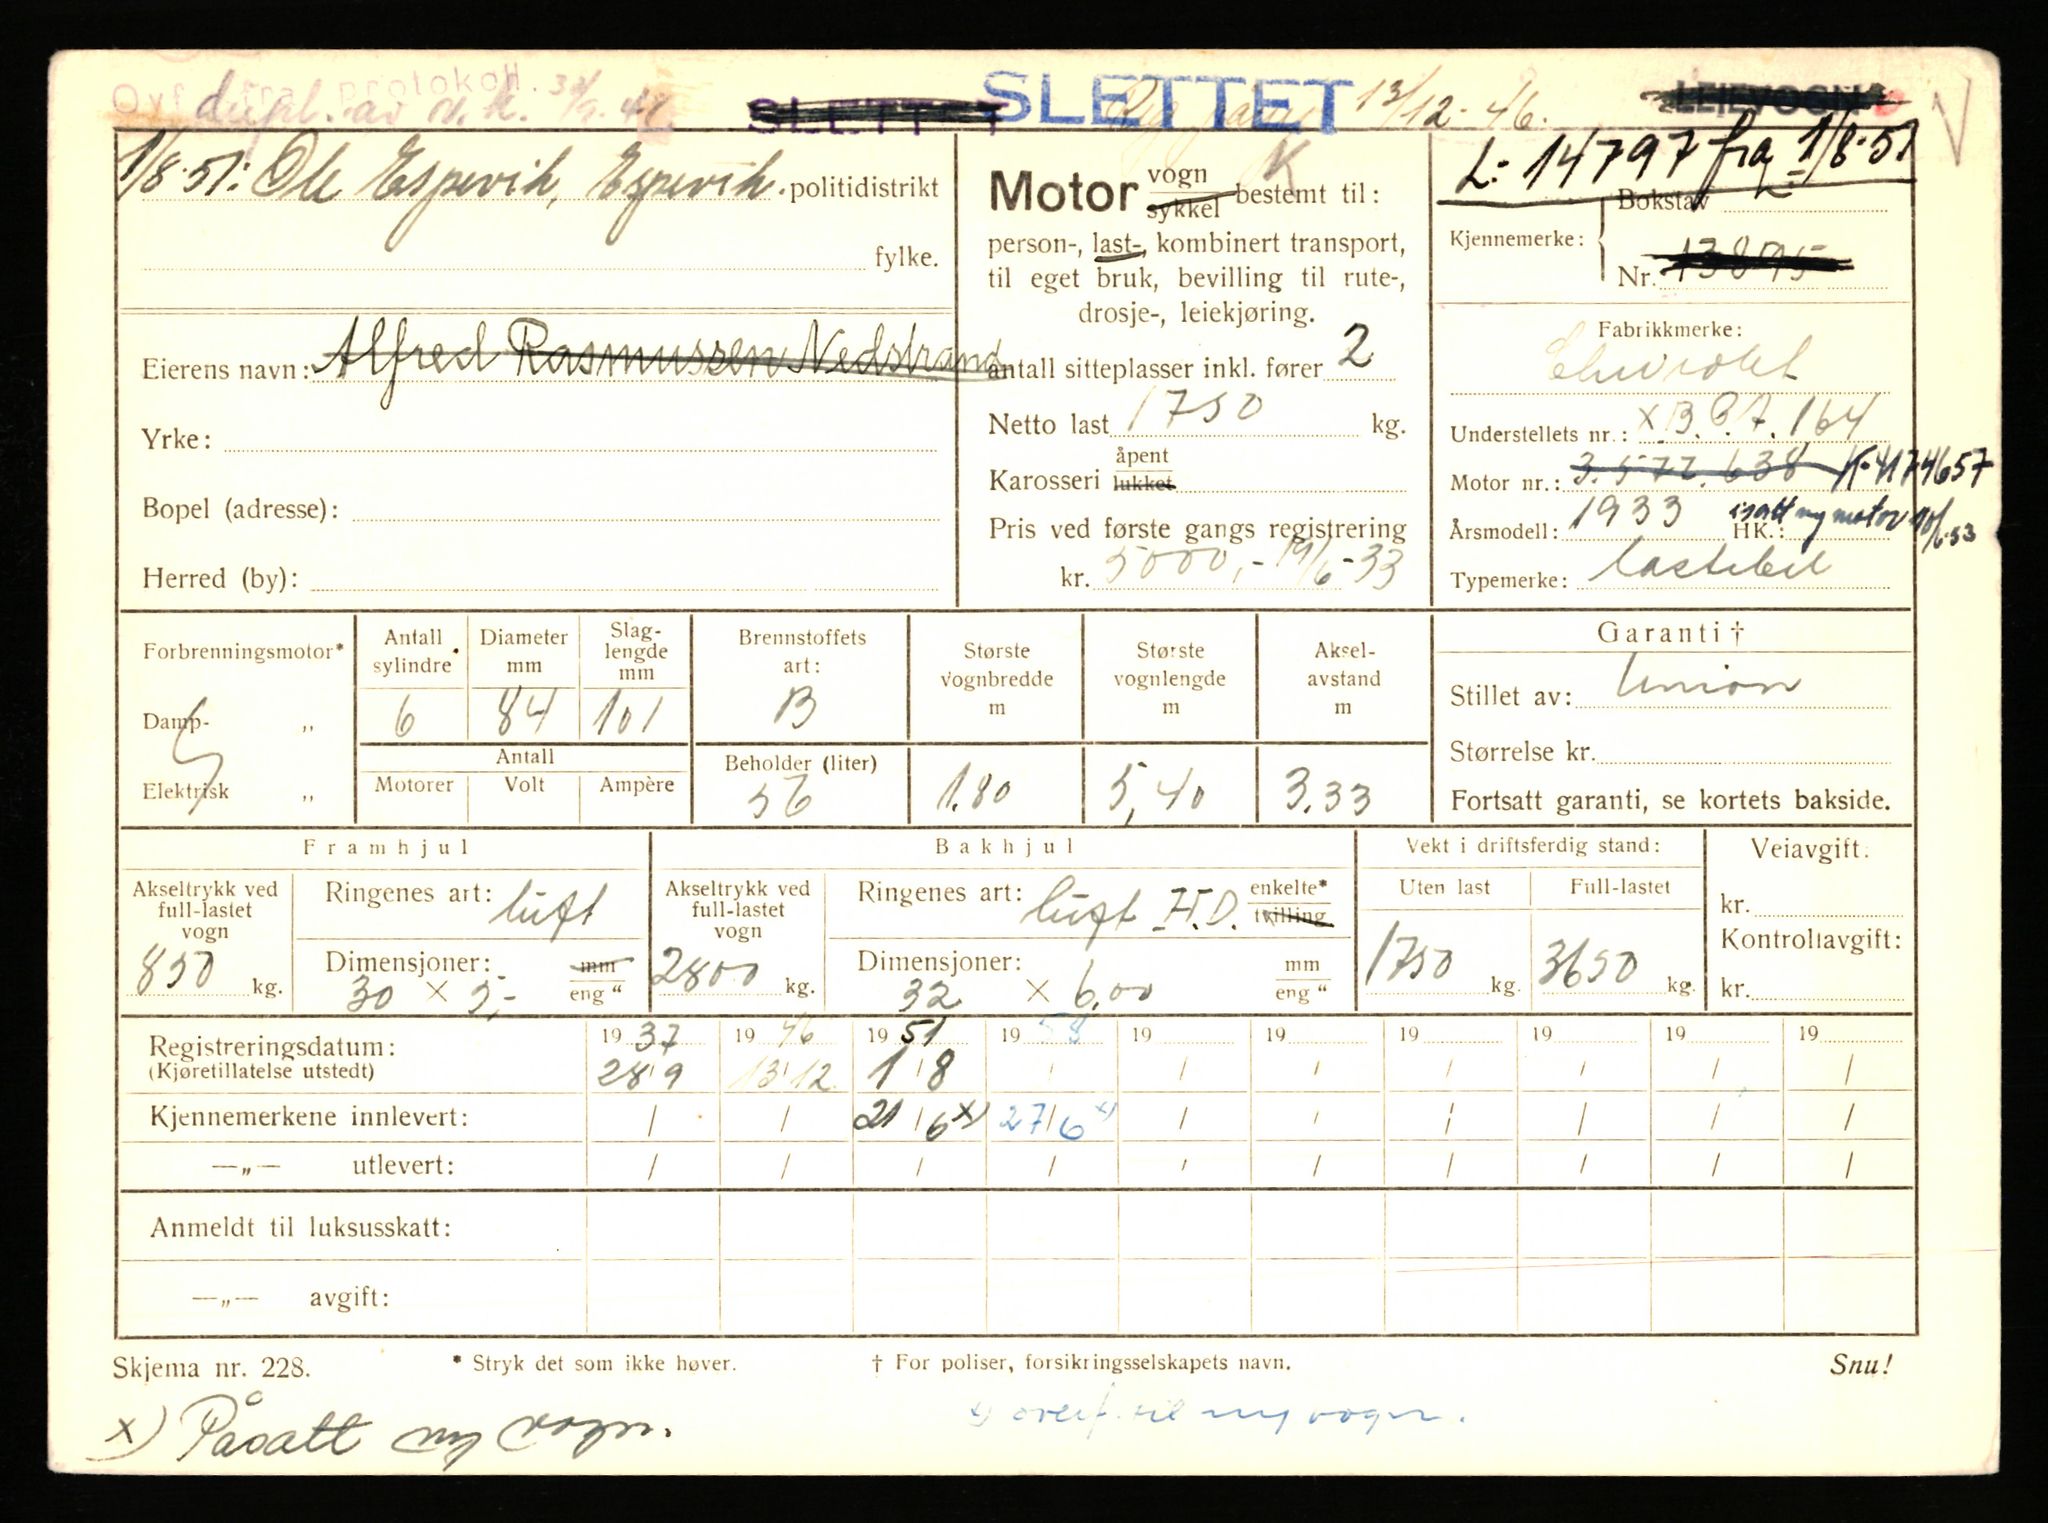 Ovf. fra protokoll.
dupl. av v.k.
SLETTET
SLETTET
13/12-46.
LEIEVOGN
1/8-51: Ole Espevik, Espevik. politidistrikt
fylke.
Eierens navn: Alfred Rasmussen Nedstrand
Yrke:
Bopel (adresse):
Herred (by):
K
Motor vogn sykkel bestemt til:
person-, last-, kombinert transport,
til eget bruk, bevilling til rute-,
drosje-, leiekjøring.
antall sitteplasser inkl. fører 2
Netto last 1750 kg.
Karosseri åpent lukket
Pris ved første gangs registrering
kr. 5000,- 19/6-33
L- 14797 fra 1/8-51
Bokstav L-
Kjennemerke:
Nr. 13895
Fabrikkmerke:
Chevrolet
Understellets nr.: X B. P. A. 164
Motor nr.: 3.572.638 K-4174657
Årsmodell: 1933 HK.: isatt ny motor 10/6-53
Typemerke: Lastebil
Forbrenningsmotor*
Damp- „
Elektrisk „
Antall sylindre
Diameter mm
Slag-lengde mm
6 84 101
Antall
Motorer Volt Ampère
Brennstoffets art:
B
Beholder (liter)
56
Største vognbredde m
1.80
Største vognlengde m
5,40
Aksel-avstand m
3.33
Garanti †
Stillet av: Union
Størrelse kr.
Fortsatt garanti, se kortets bakside.
Framhjul
Akseltrykk ved full-lastet vogn
850 kg.
Ringenes art: luft
Dimensjoner: mm
30 × 5,- eng "
Bakhjul
Akseltrykk ved full-lastet vogn
2800 kg.
Ringenes art: luft H.D. enkelte* tvilling
Dimensjoner: mm
32 × 6,00 eng "
Vekt i driftsferdig stand:
Uten last Full-lastet
1750 kg. 3650 kg.
Veiavgift:
kr.
Kontrollavgift:
kr.
Registreringsdatum: 1937 1946 1951 1958 19 19 19 19 19 19
(Kjøretillatelse utstedt) 28/9 13/12 1/8 / / / / / / /
Kjennemerkene innlevert: / / 21/6 x) 27/6 x) / / / / / /
—„— utlevert: / / / / / / / / / /
Anmeldt til luksusskatt:
—„— avgift:
Skjema nr. 228. * Stryk det som ikke høver. † For poliser, forsikringsselskapets navn. Snu!
x) Påsatt ny vogn.
x) overf. til ny vogn.